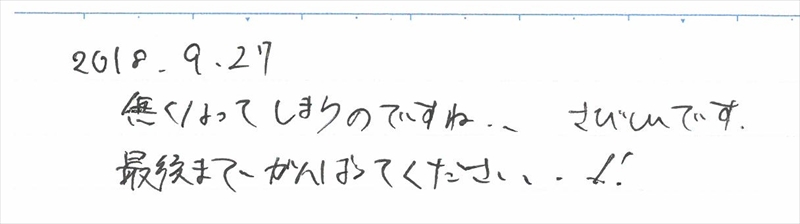 2018.9.27
無くなってしまうのですね.、 さびしいです.
最後まで、がんばってください、..!!